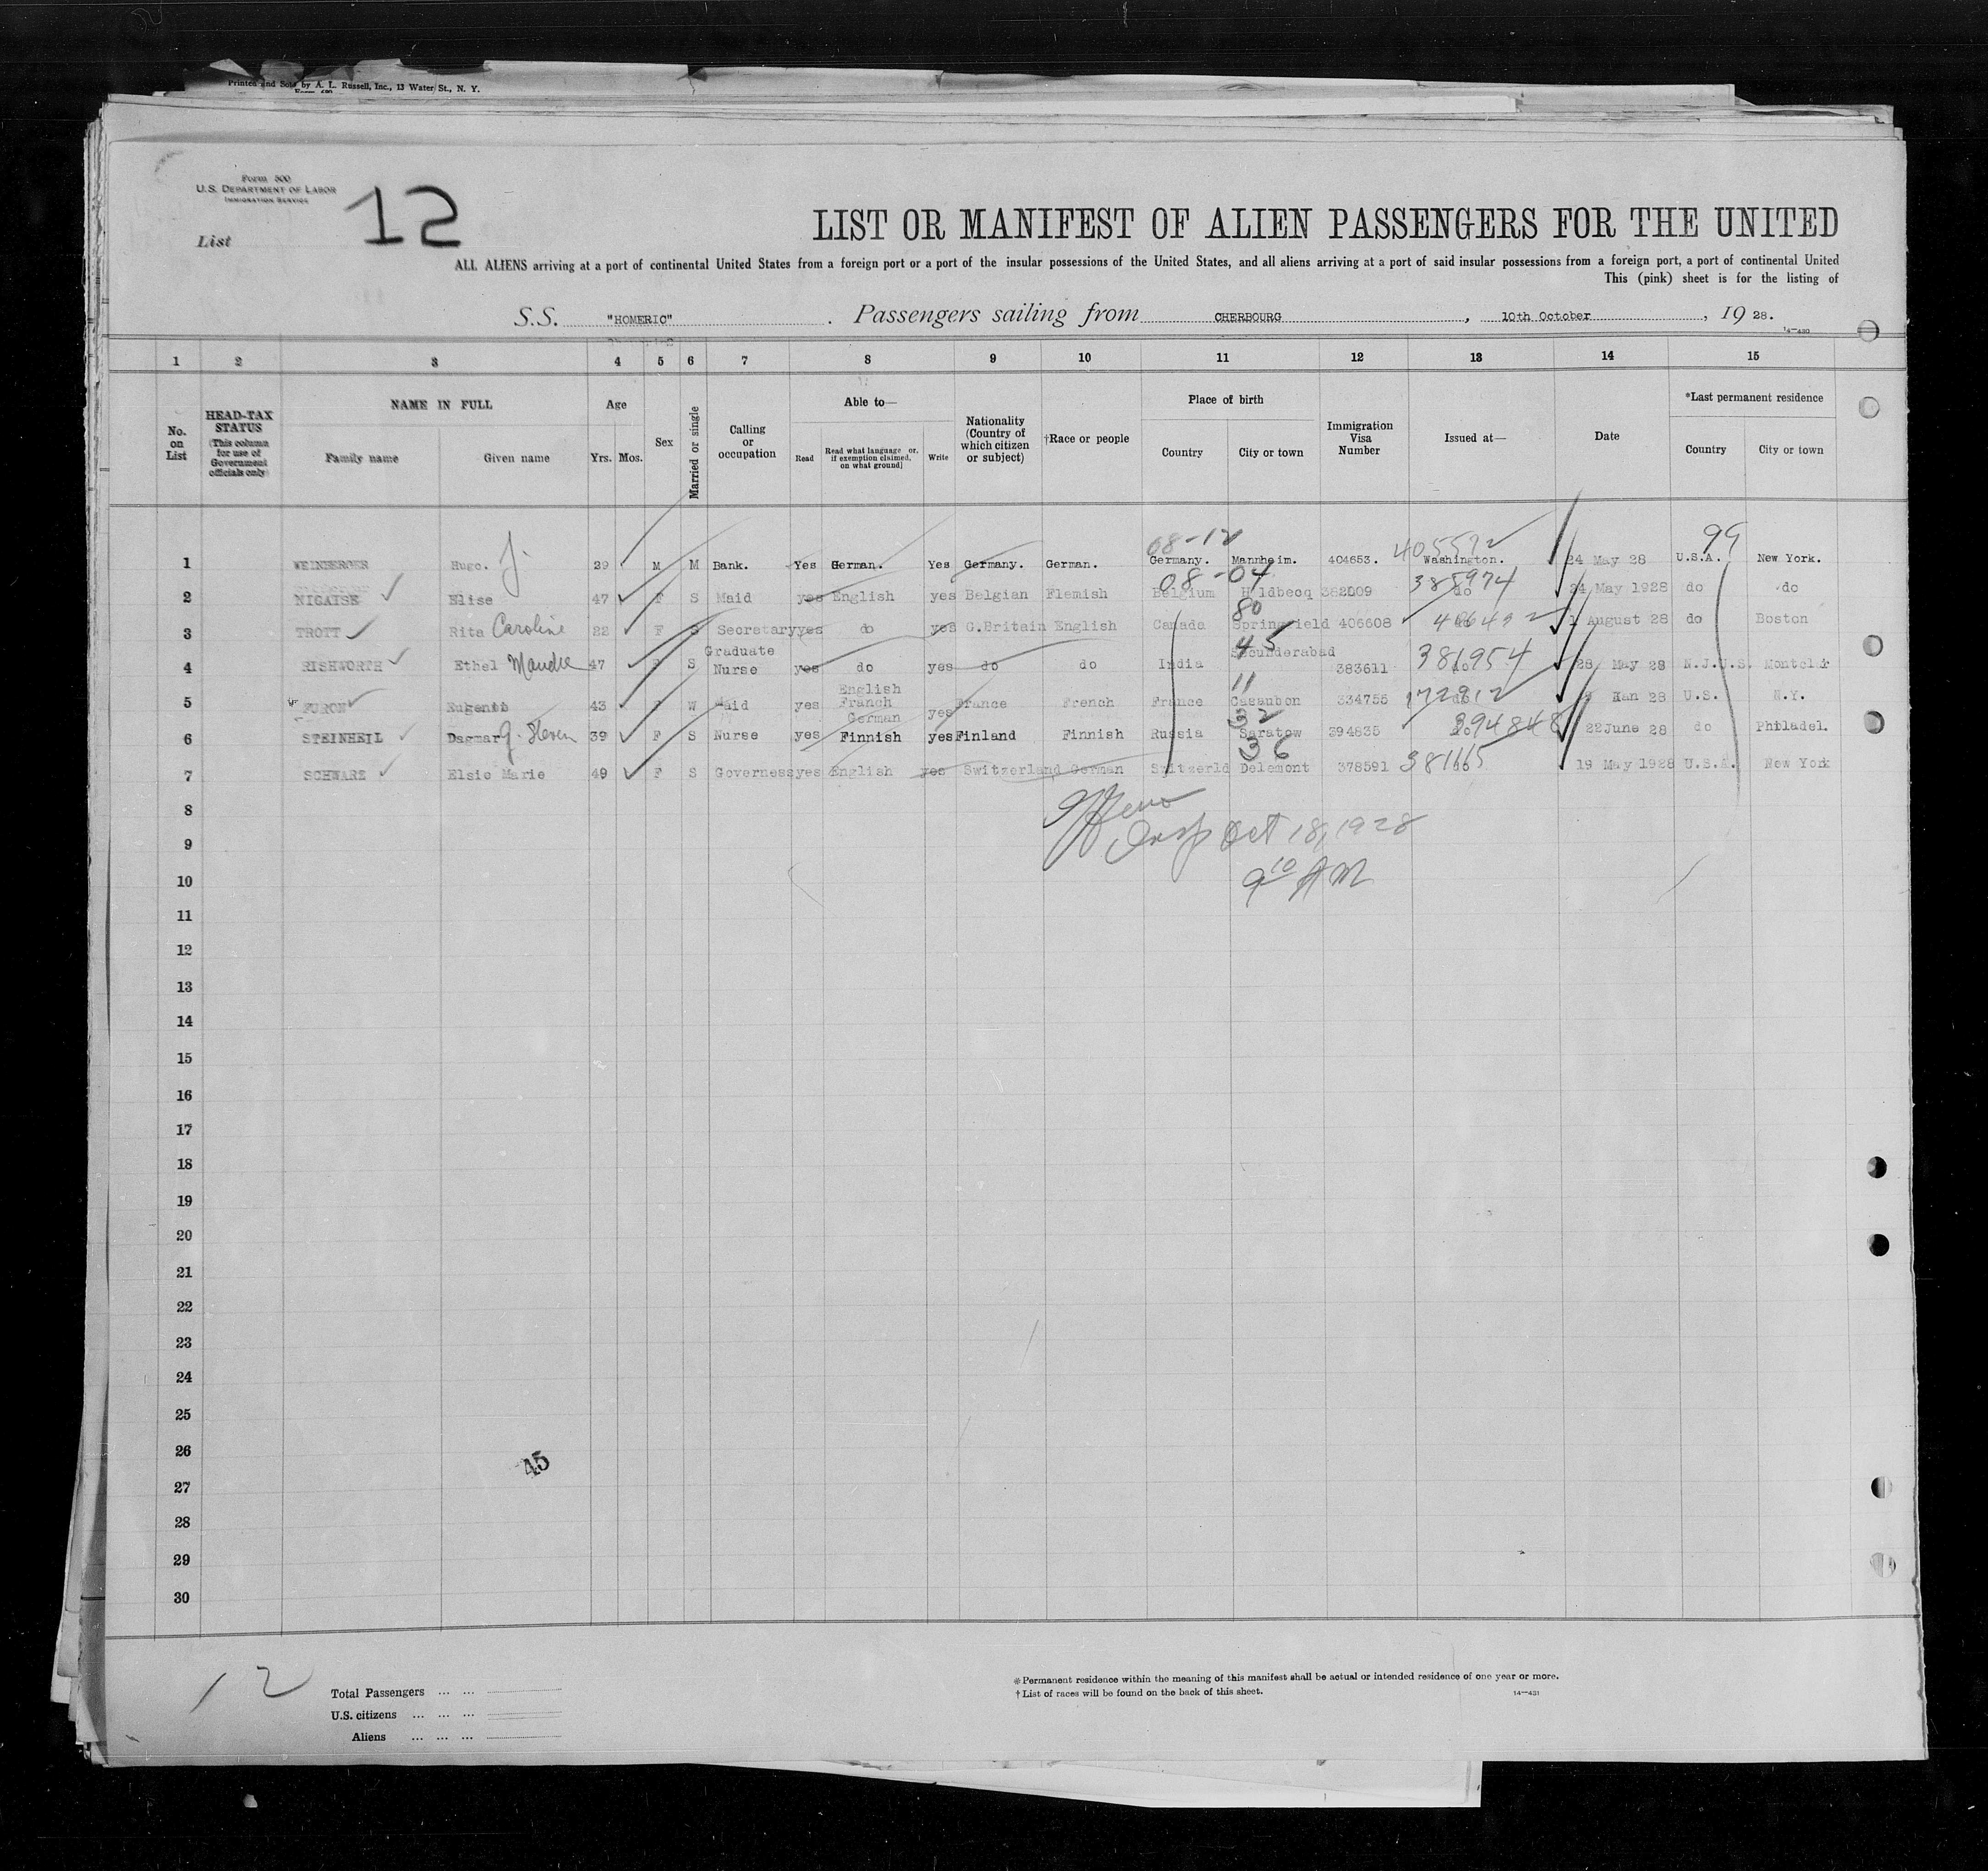 Printed and Sold by A. L. Russell, Inc., 13 Water St., N. Y.
Form 500
U.S. DEPARTMENT OF LABOR
IMMIGRATION SERVICE
List 12
LIST OR MANIFEST OF ALIEN PASSENGERS FOR THE UNITED
ALL ALIENS arriving at a port of continental United States from a foreign port or a port of the insular possessions of the United States, and all aliens arriving at a port of said insular possessions from a foreign port, a port of continental United
This (pink) sheet is for the listing of
S.S. "HOMERIC". Passengers sailing from CHERBOURG, 10th October, 19 28.
14-430
1 2 3 4 5 6 7 8 9 10 11 12 13 14 15
No. on List HEAD-TAX STATUS (This column for use of Government officials only) NAME IN FULL Family name Given name Age Yrs. Mos. Sex Married or single Calling or occupation Able to— Read Read what language or, if exemption claimed, on what ground] Write Nationality (Country of which citizen or subject) †Race or people Place of birth Country City or town Immigration Visa Number Issued at— Date *Last permanent residence Country City or town
08-12 405572 99
1 WEINBERGER Hugo. J. 29 M M Bank. Yes German. Yes Germany. German. Germany. Mannheim. 404653. Washington. 24 May 28 U.S.A. New York.
08-04 385974
2 NIGAISE Elise 47 F S Maid yes English yes Belgian Flemish Belgium Holdbecq 382009 do 24 May 1928 do do
80
3 TROTT Rita Caroline 22 F S Secretary yes do yes G.Britain English Canada Springfield 406608 do 1 August 28 do Boston
45 381954
4 RISHWORTH Ethel Maude 47 F S Graduate Nurse yes do yes do do India Secunderabad 383611 do 28 May 28 N.J.U.S. Montclr
11 172912
5 FURON 43 F W Maid yes English French German yes France French France Casaubon 334755 28 U.S. N.Y.
32 394848
6 STEINHEIL Dagmar 39 F S Nurse yes Finnish yes Finland Finnish Russia Saratow 394835 do 22 June 28 do Philadel.
36 381165
7 SCHWARZ Elsie Marie 49 F S Governess yes English yes Switzerland German Switzerld Delemont 378591 do 19 May 1928 U.S.A. New York
8
Insp Oct 18, 1928
9
9 10 AM
10
11
12
13
14
15
16
17
18
19
20
21
22
23
24
25
26
45
27
28
29
30
12
Total Passengers ... ...
U.S. citizens ... ... ...
Aliens ... ... ...
*Permanent residence within the meaning of this manifest shall be actual or intended residence of one year or more.
†List of races will be found on the back of this sheet.
14-431